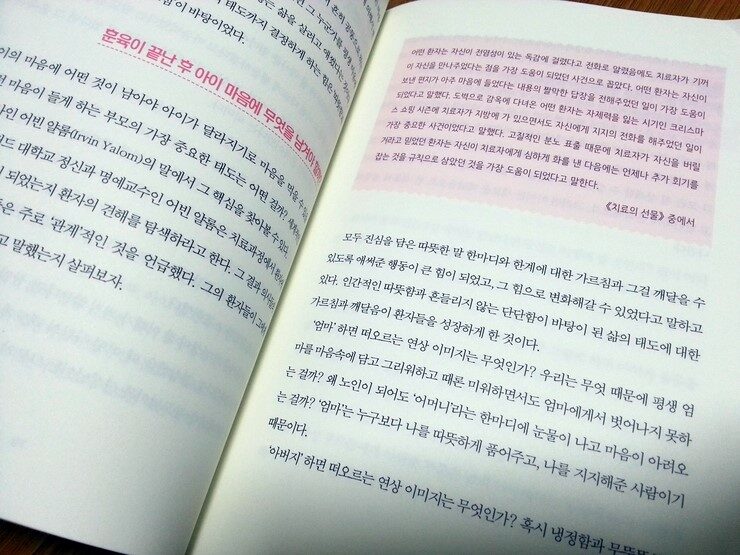 는 삶을 살려고 애썼다는
그 누군가를
태도까지 결정하게 하는 힘은
힘'이 바탕이었다.
훈육이 끝난 후 아이 마음에 무엇을 남겨야
이의 마음에 어떤 것이 남아야 아이가 달라지기로 마음을 먹을 수
런 마음이 들게 하는 부모의 가장 중요한 태도는 어떤 걸까?
어빈 얄롬(Irvin Yalom)의 말에서 그 핵심을 찾아볼 수 있다.
드 대학교 정신과 명예교수인 어빈 얄롬은 치료과정에서
이 되었는지 환자의 견해를 탐색하라고 한다. 그 결과
은 주로 '관계'적인 것을 언급했다. 그의 환자들이
고 말했는지 살펴보자.
어떤 환자는 자신이 전염성이 있는 독감에 걸렸다고 전화로 말했음에도 치료자가 기꺼
이 자신을 만나주었다는 점을 가장 도움이 되었던 사건으로 꼽았다. 어떤 환자는 자신이
보낸 편지가 아주 마음에 들었다는 내용의 짤막한 답장을 전해주었던 일이 가장 도움이
되었다고 말했다. 도벽으로 감옥에 다녀온 어떤 환자는 자제력을 잃는 시기인 크리스마
스 쇼핑 시즌에 치료자가 지방에 가 있으면서도 자신에게 지지의 전화를 해주었던 일이
가장 충요한 사건이었다고 말했다. 고질적인 분노 표출 때문에 치료자가 자신을 버릴
거라고 믿었던 환자는 자신이 치료자에게 심하게 화를 낸 다음에는 언제나 추가 회기를
잡는 것을 규칙으로 삼았던 것을 가장 도움이 되었다고 말한다.
《치료의 선물》 중에서
모두 진심을 담은 따뜻한 말 한마디와 한계에 대한 가르침과 그걸 깨달을 수
있도록 애써준 행동이 큰 힘이 되었고, 그 힘으로 변화해갈 수 있었다고 말하고
있다. 인간적인 따뜻함과 흔들리지 않는 단단함이 바탕이 된 삶의 태도에 대한
가르침과 깨달음이 환자들을 성장하게 한 것이다.
'엄마' 하면 떠오르는 연상 이미지는 무엇인가? 우리는 무엇 때문에 평생 엄
마를 마음속에 담고 그리워하고 때론 미워하면서도 엄마에게서 벗어나지 못하
는 걸까? 왜 노인이 되어도 '어머니'라는 한마디에 눈물이 나고 마음이 아려오
는 걸까? '엄마'는 누구보다 나를 따뜻하게 품어주고, 나를 지지해준 사람이기
때문이다.
'아버지' 하면 떠오르는 연상 이미지는 무엇인가? 혹시 냉정함과